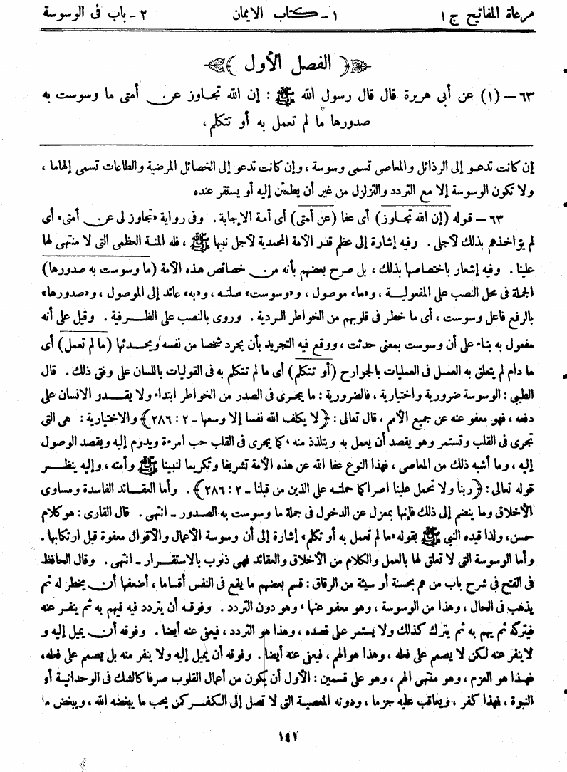 مرعاة المفاتيح ج ١ ١ - كتاب الايمان ٢ - باب فى الوسوسة
﴿ الفصل الأول ﴾
٦٣ - (١) عن أبي هريرة قال قال رسول الله ﷺ: إن الله تجاوز عن أمتى ما وسوست به
صدورها ما لم تعمل به أو تتكلم،
إن كانت تدعو إلى الرذائل والمعاصى تسمى وسوسة، وإن كانت تدعو إلى الخصائل المرضية والطاعات تسمى إلهاما،
ولا تكون الوسوسة إلا مع التردد والتزلزل من غير أن يطمئن إليه أو يستقر عنده
٦٣ - قوله (إن الله تجاوز) أى عفا (عن أمتى) أى أمة الإجابة. وفى رواية «تجاوز لى عن أمتى» أى
لم يؤاخذهم بذلك لأجلى. وفيه إشارة إلى عظم قدر الأمة المحمدية لأجل نبيها ﷺ، فله المنة العظمى التى لا منتهى لها
علينا. وفيه إشعار باختصاصها بذلك، بل صرح بعضهم بأنه من خصائص هذه الأمة (ما وسوست به صدورها)
الجملة فى محل النصب على المفعولية، و«ما» موصول، و«وسوست» صلته، و«به» عائد إلى الموصول، و«صدورها»
بالرفع فاعل وسوست، أى ما خطر فى قلوبهم من الخواطر الردية. وروى بالنصب على الظرفية. وقيل على أنه
مفعول به بناء على أن وسوست بمعنى حدثت، ووقع فيه التجريد بأن يجرد شخصا من نفسه ويحدثها (ما لم تعمل) أى
ما دام لم يتعلق به العمل فى العمليات بالجوارح (أو تتكلم) أى ما لم تتكلم به فى القوليات باللسان على وفق ذلك. قال
الطيبى: الوسوسة ضرورية واختيارية، فالضرورية: ما يجرى فى الصدر من الخواطر ابتداء ولا يقدر الانسان على
دفعه، فهو معفو عنه عن جميع الأمم، قال تعالى: ﴿لا يكلف الله نفسا إلا وسعها - ٢: ٢٨٦﴾ والاختيارية: هى التى
تجرى فى القلب وتستمر وهو يقصد أن يعمل به ويتلذذ منه، كما يجرى فى القلب حب امرءة ويدوم إليه ويقصد الوصول
إليه، وما أشبه ذلك من المعاصى، فهذا النوع عفا الله عن هذه الأمة تشريفا وتكريما لنبينا ﷺ وأمته، وإليه ينظر
قوله تعالى: ﴿ربنا ولا تحمل علينا اصرا كما حملته على الذين من قبلنا - ٢: ٢٨٦﴾. وأما العقائد الفاسدة ومساوى
الأخلاق وما ينضم إلى ذلك فإنها بمعزل عن الدخول فى جملة ما وسوست به الصدور - انتهى. قال القارى: هو كلام
حسن، ولذا قيده النبى ﷺ بقوله «ما لم تعمل به أو تتكلم» إشارة إلى أن وسوسة الأعمال والأقوال معفوة قبل ارتكابها.
وأما الوسوسة التى لا تعلق لها بالعمل والكلام من الأخلاق والعقائد فهى ذنوب بالاستقرار - انتهى. وقال الحافظ
فى الفتح فى شرح باب من هم بحسنة أو سيئة من الرقاق: قسم بعضهم ما يقع فى النفس أقساما، أضعفها أن يخطر له ثم
يذهب فى الحال، وهذا من الوسوسة، وهو معفو عنها، وهو دون التردد. وفوقه أن يتردد فيه فيهم به ثم ينفر عنه
فيتركه ثم يهم به ثم يترك كذلك ولا يستمر على قصده، وهذا هو التردد، فيعفى عنه أيضا. وفوقه أن يميل إليه و
لا ينفر عنه لكن لا يصمم على فعله، وهذا هو الهم، فيعفى عنه أيضا. وفوقه أن يميل إليه ولا ينفر منه بل يصمم على فعله،
فهذا هو العزم، وهو منتهى الهم، وهو على قسمين: الأول أن يكون من أعمال القلوب صرفا كالشك فى الوحدانية أو
النبوة، فهذا كفر، ويعاقب عليه جزما، ودونه المعصية التى لا تصل إلى الكفر كمن يحب ما يبغضه الله، ويبغض ما
١٤٢